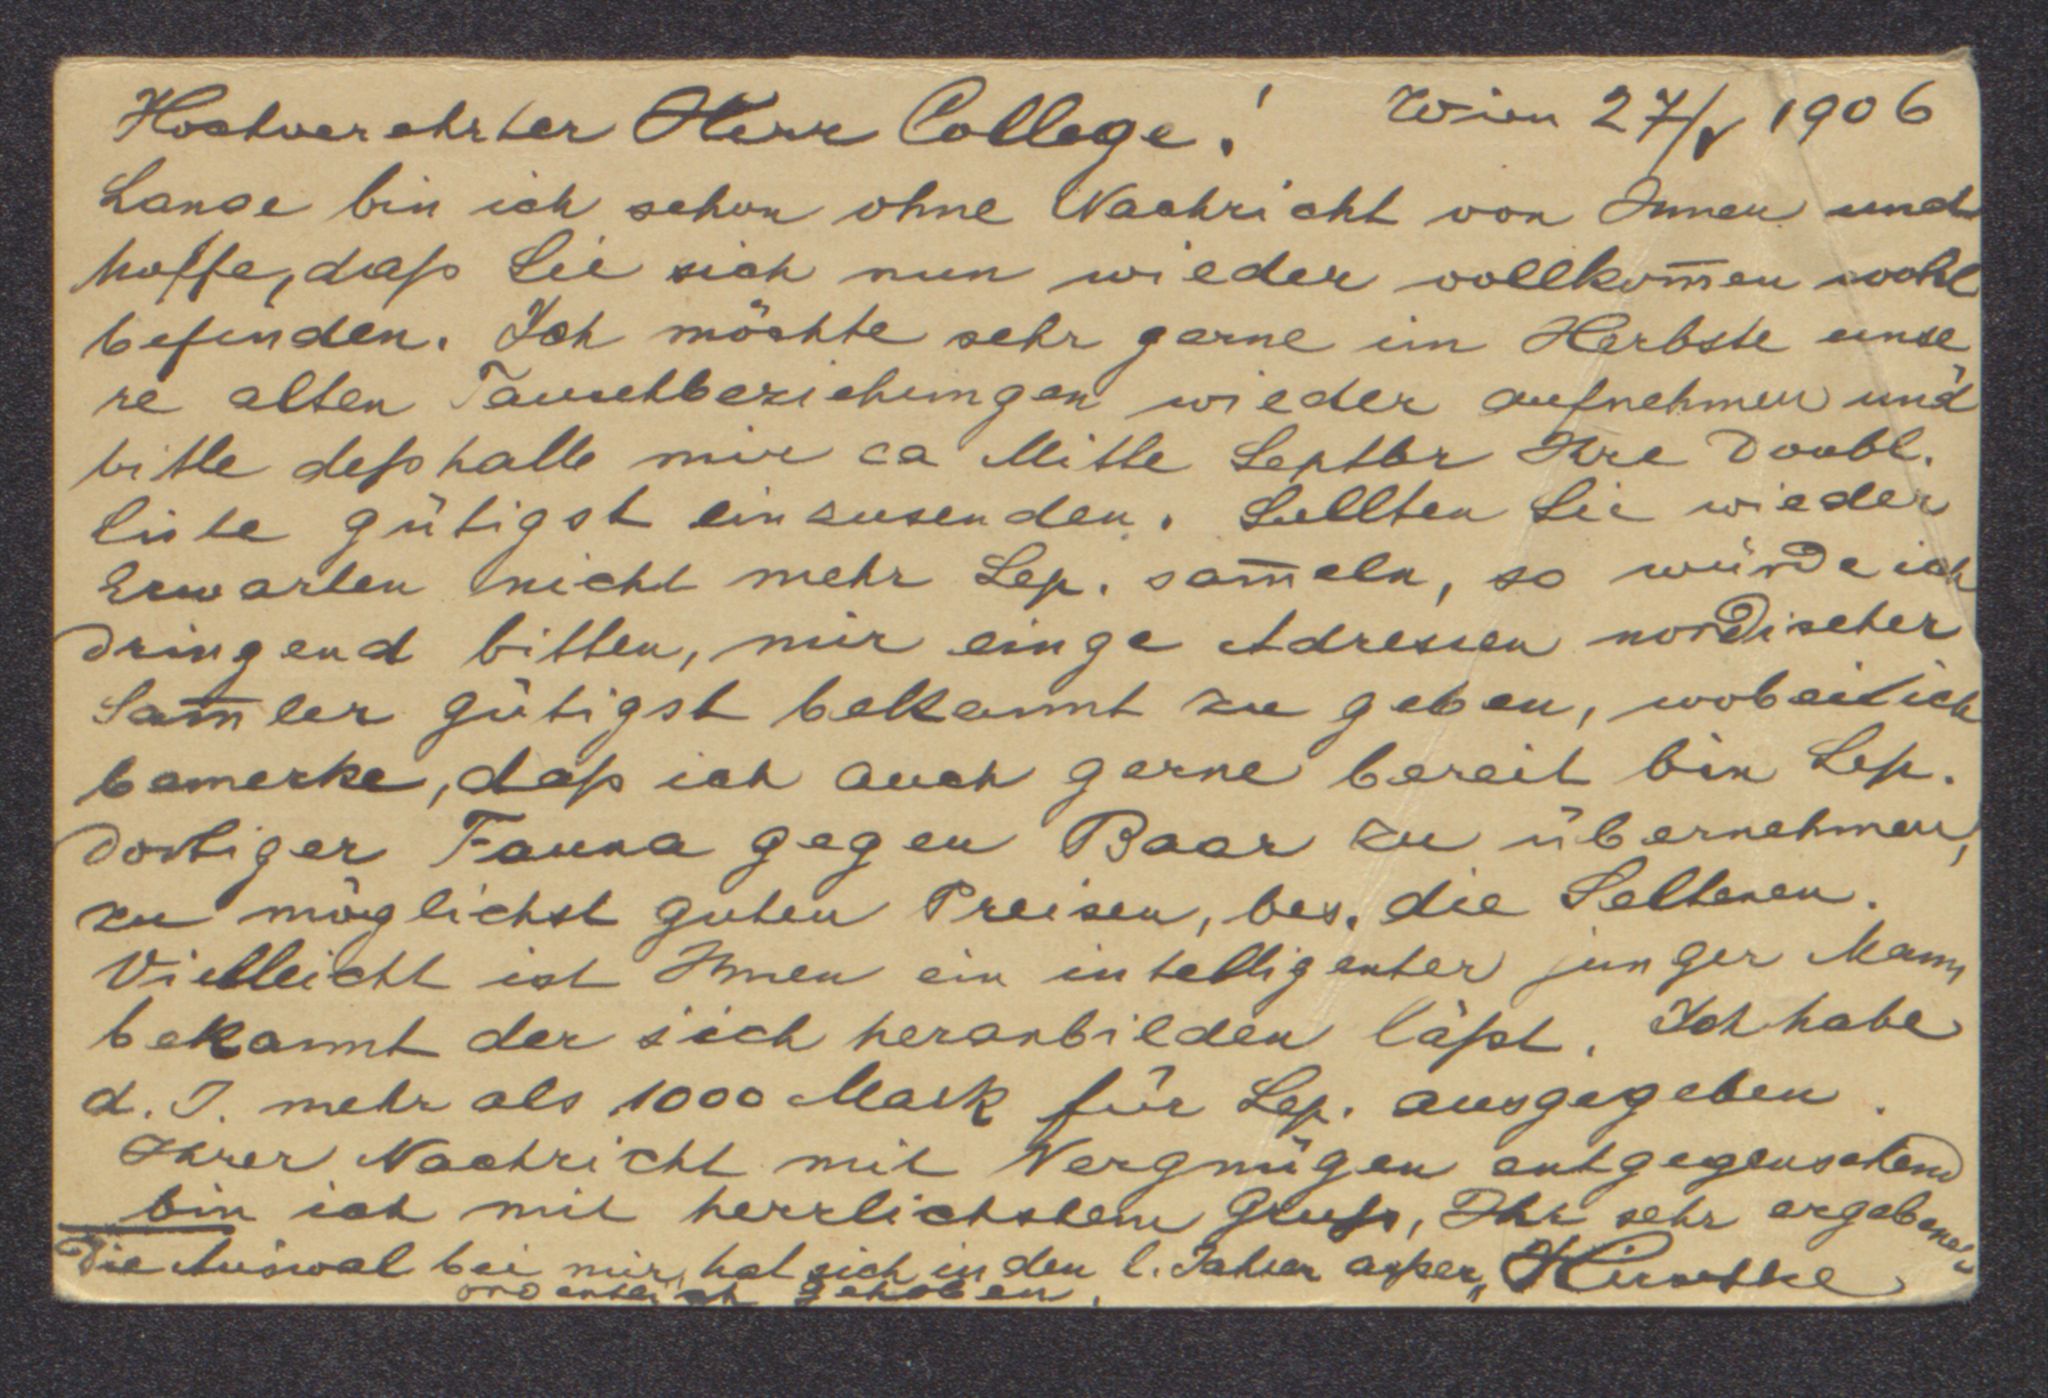 Hochverehrter Herr College! Wien 27/V 1906
Lange bin ich schon ohne Nachricht von Ihnen und
hoffe, daß Sie sich nun wieder vollkom̅en wohl
befinden. Ich möchte sehr gerne im Herbste unse
re alten Tauschbeziehungen wieder aufnehmen und
bitte deßhalb mir ca Mitte Septbr Ihre Doubl.
liste gütigst einzusenden. Sollten Sie wieder
Erwarten nicht mehr Lep. sam̅eln, so würde ich
dringend bitten, mir einge Adressen nordischer
Sam̅ler gütigst bekannt zu geben, wobei ich
bemerke, daß ich auch gerne bereit bin Lep.
dortiger Fauna gegen Baar zu übernehmen,
zu möglichst guten Preisen, bes. die Seltenen.
Vielleicht ist Ihnen ein intelligenter junger Mann
bekannt der sich heranbilden läßt. Ich habe
d. J. mehr als 1000 Mark für Lep. ausgegeben.
Ihrer Nachricht mit Vergnügen entgegensehend
bin ich mit herzlichstem Gruß, Ihr sehr ergebener
Die Auswal bei mir hat sich in den l. Jahren
gehoben.